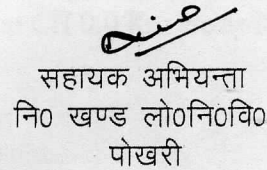 सहायक अभियन्ता
नि0 खण्ड लो0नि0वि0
पोखरी